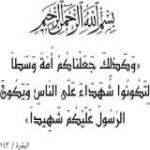 بِسْمِ اللَّهِ الرَّحْمَٰنِ الرَّحِيمِ
«وَكَذَلِكَ جَعَلْنَاكُمْ أُمَّةً وَسَطًا
لِتَكُونُوا شُهَدَاءَ عَلَى النَّاسِ وَيَكُونَ
الرَّسُولُ عَلَيْكُمْ شَهِيدًا»
البقرة / ١٤٣